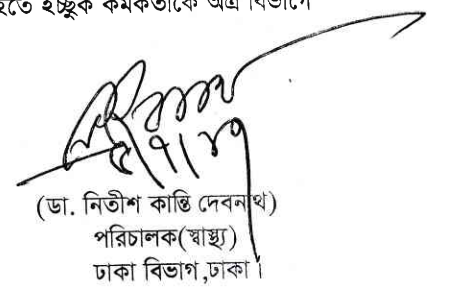 হতে ইচ্ছুক কর্মকর্তাকে অত্র বিভাগে
(ডা. নিতীশ কান্তি দেবনাথ)
পরিচালক(স্বাস্থ্য)
ঢাকা বিভাগ,ঢাকা।